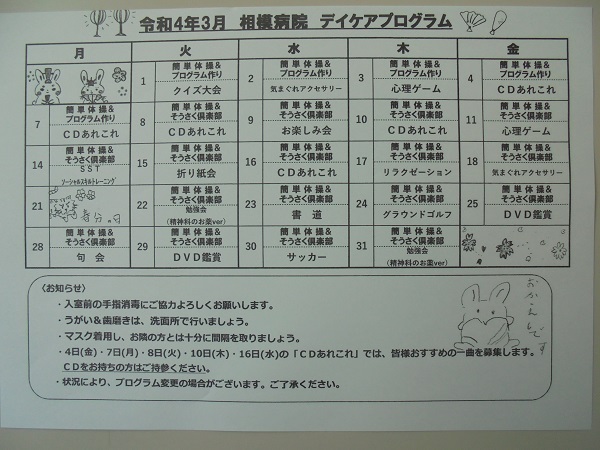 令和4年3月 相模病院 デイケアプログラム
月 火 水 木 金
1 簡単体操&プログラム作り クイズ大会
2 簡単体操&プログラム作り 気まぐれアクセサリー
3 簡単体操&プログラム作り 心理ゲーム
4 簡単体操&プログラム作り CDあれこれ
7 簡単体操&プログラム作り CDあれこれ
8 簡単体操&そうさく倶楽部 CDあれこれ
9 簡単体操&そうさく倶楽部 お楽しみ会
10 簡単体操&そうさく倶楽部 CDあれこれ
11 簡単体操&そうさく倶楽部 心理ゲーム
14 簡単体操&そうさく倶楽部 SST ソーシャルスキルトレーニング
15 簡単体操&そうさく倶楽部 折り紙会
16 簡単体操&そうさく倶楽部 CDあれこれ
17 簡単体操&そうさく倶楽部 リラクゼーション
18 簡単体操&そうさく倶楽部 気まぐれアクセサリー
21 春分の日
22 簡単体操&そうさく倶楽部 勉強会 (精神科のお薬ver)
23 簡単体操&そうさく倶楽部 書道
24 簡単体操&そうさく倶楽部 グラウンドゴルフ
25 簡単体操&そうさく倶楽部 DVD鑑賞
28 簡単体操&そうさく倶楽部 句会
29 簡単体操&そうさく倶楽部 DVD鑑賞
30 簡単体操&そうさく倶楽部 サッカー
31 簡単体操&そうさく倶楽部 勉強会 (精神科のお薬ver)
〈お知らせ〉
・入室前の手指消毒にご協力よろしくお願いします。
・うがい&歯磨きは、洗面所で行いましょう。
・マスク着用し、お隣の方とは十分に間隔を取りましょう。
・4日(金)・7日(月)・8日(火)・10日(木)・16日(水)の「CDあれこれ」では、皆様おすすめの一曲を募集します。
CDをお持ちの方はご持参ください。
・状況により、プログラム変更の場合がございます。ご了承ください。